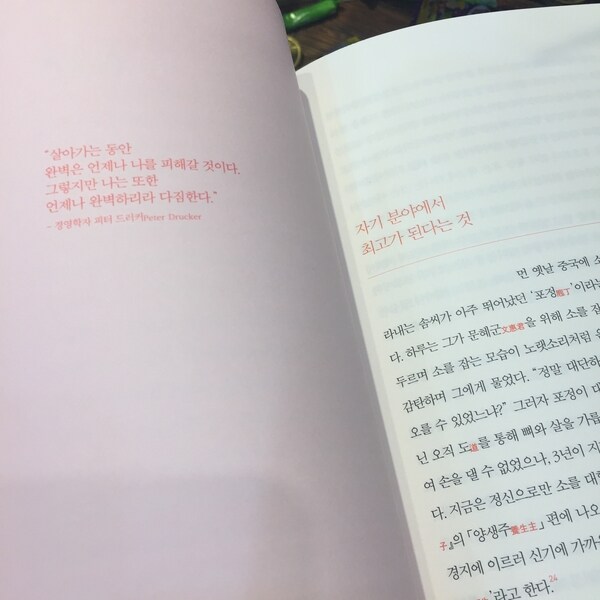 “살아가는 동안
완벽은 언제나 나를 피해갈 것이다.
그렇지만 나는 또한
언제나 완벽하리라 다짐한다.”
- 경영학자 피터 드러커Peter Drucker
자기 분야에서
최고가 된다는 것
먼 옛날 중국에 소
라내는 솜씨가 아주 뛰어났던 ‘포정庖丁’이라는
다. 하루는 그가 문혜군文惠君을 위해 소를 잡
두르며 소를 잡는 모습이 노랫소리처럼
감탄하며 그에게 물었다. “정말 대단하
오를 수 있었느냐?” 그러자 포정이 대
닌 오직 도道를 통해 뼈와 살을 가릅
여 손을 댈 수 없었으나, 3년이 지
다. 지금은 정신으로만 소를 대
子』의 「양생주養生主」 편에 나오
경지에 이르러 신기에 가까
’라고 한다.24